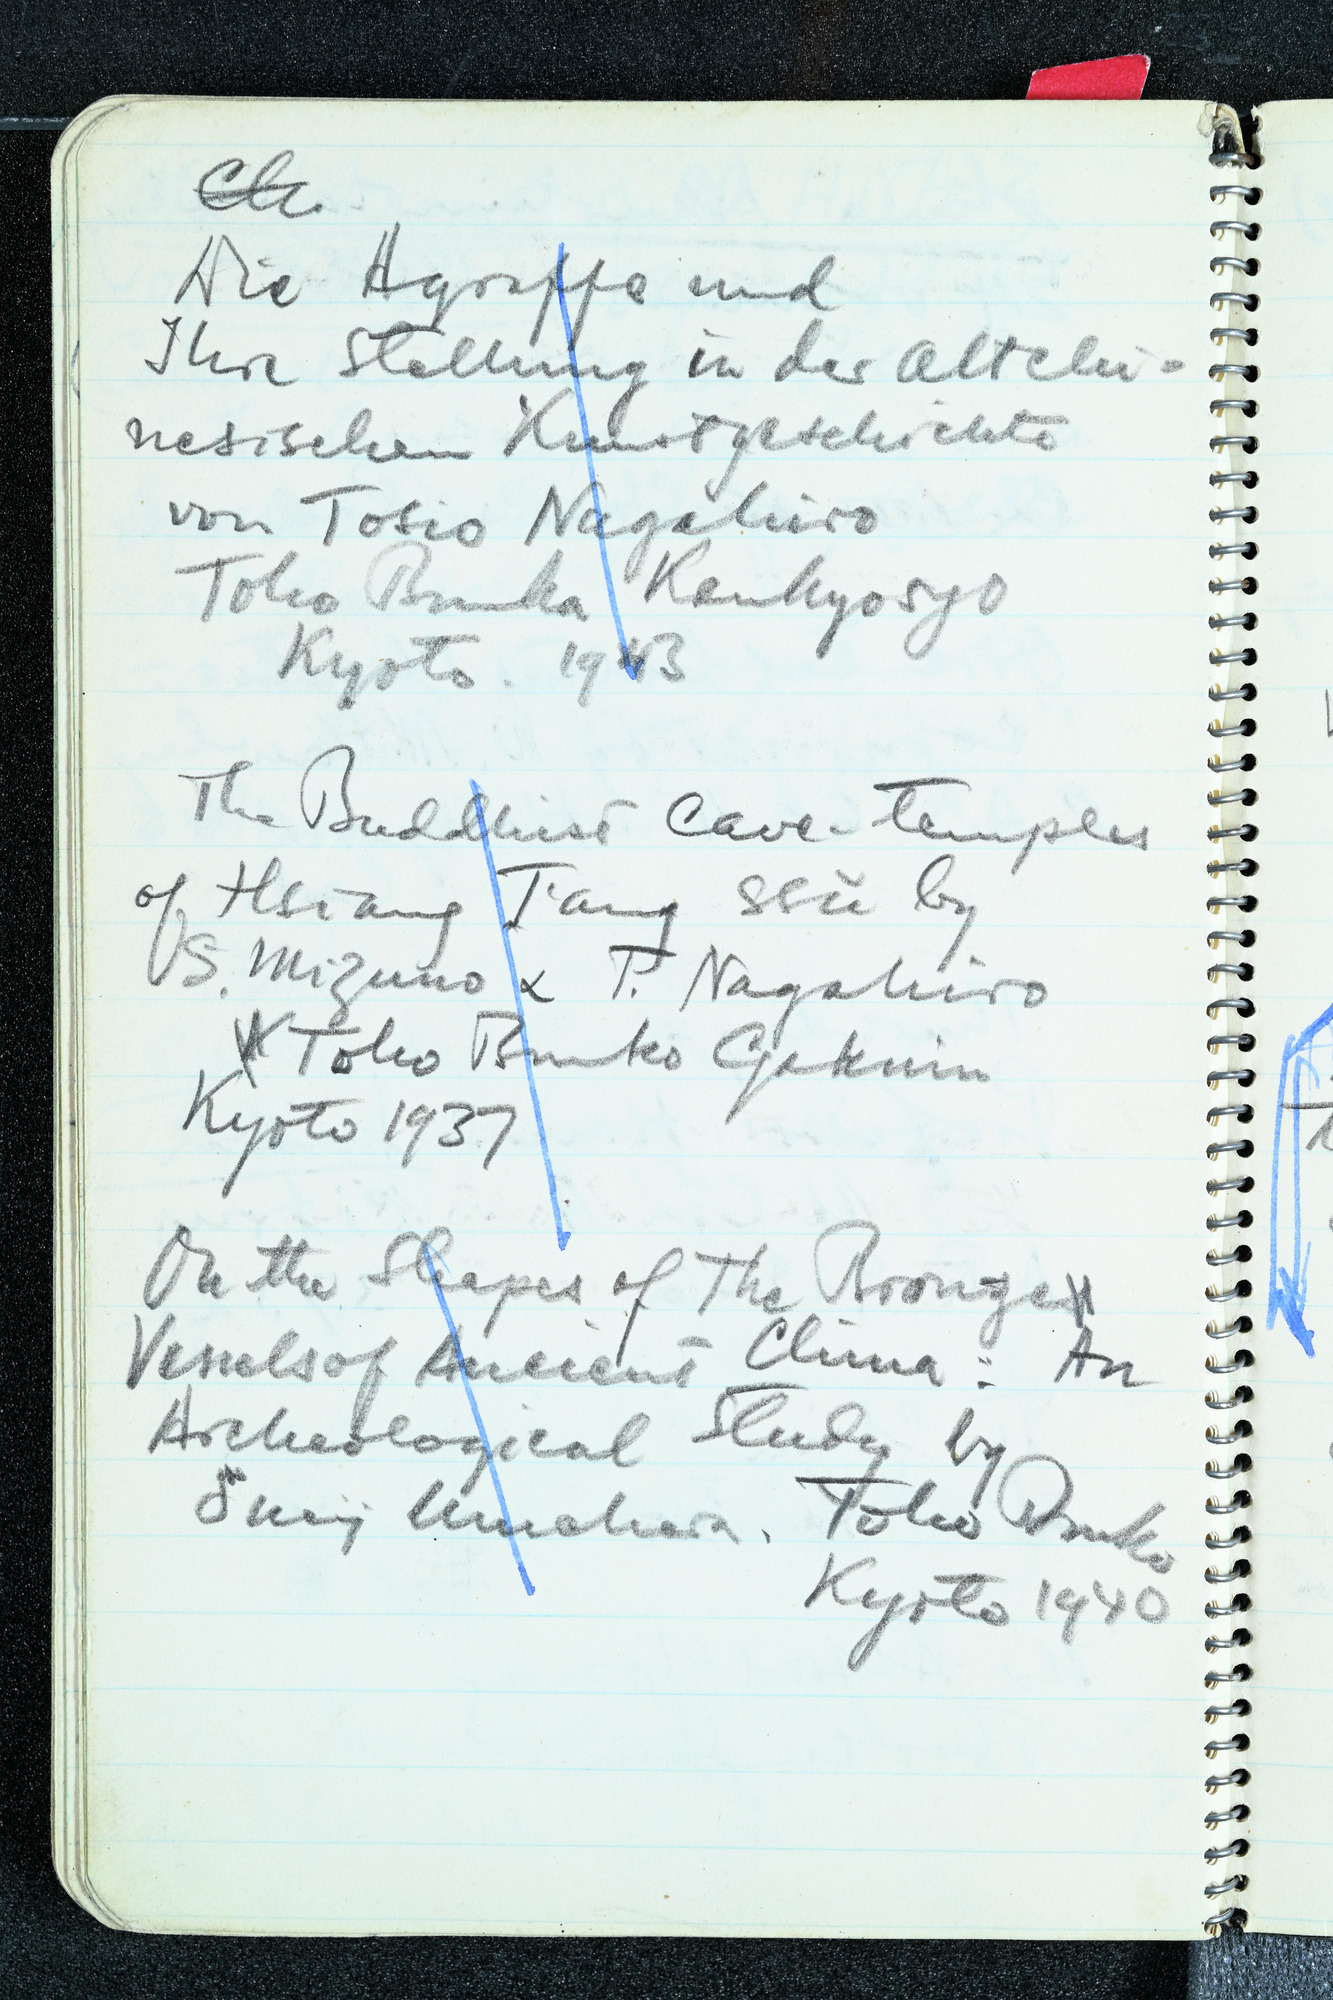 Ch.
Die Agraffe und
Ihre Stellung in der altchi-
nesischen Kunstgeschichte
von Tosio Nagahiro
Toho Bunka Kenkyosyo
Kyoto. 1943
The Buddhist Cave-temples
of Hsiang T'ang Ssŭ by
S. Mizuno & T. Nagahiro
Toho Bunko Gakuin
Kyoto 1937
On the Shapes of The Bronze
Vessels of Ancient China: An
Archeological Study by
Sueji Umehara. Toho Bunko
Kyoto 1940